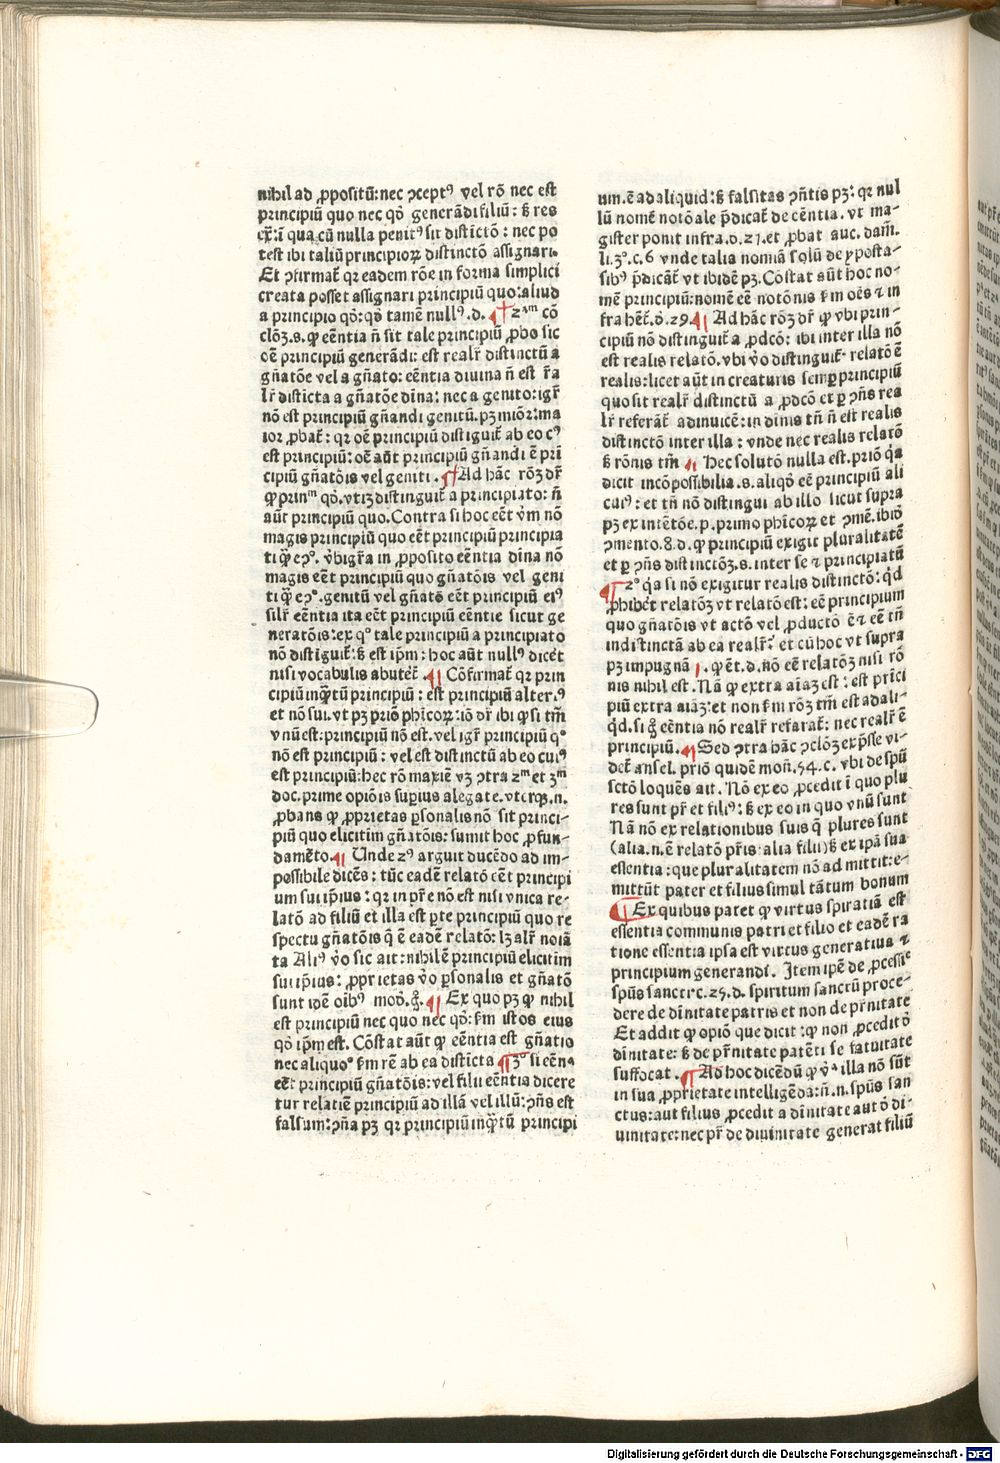 nihil ad ꝓpositū: nec ↄceptꝰ vel rō nec est
principiū quo nec qď generādi filiū: ß res
ex̄: ī qua cū nulla penitꝰ sit distīctō: nec po
test ibi taliū principioꝝ distinctō assignari.
Et ↄfirmat̄ qꝛ eadem rōe in forma simplici
creata posset assignari principiū quo: aliud
a principio qď: qď tamē nullꝰ.d. ¶ 2ᵃᵐ cō
clōꝫ.s. ꝙ eēntia n̄ sit tale principiū ꝓbo sic
oē principiū generādi: est realr̄ distinctū a
gn̄atōe vel a gn̄ato: eēntia diuina n̄ est r̄a
lr̄ disticta a gn̄atōe dīna: nec a genito: igr̄
nō est principiū gn̄andi genitū. pꝫ miōr: ma
ior ꝓbat̄: qꝛ oē principiū distiguit̄ ab eo cꝰ
est principiū: oē aūt principiū gn̄andi ē prī
cipiū gn̄atōis vel geniti. ¶ Ad hāc rōꝫ dr̄
ꝙ prinᵐ qď. vtiꝫ distinguit̄ a principiato: n̄
aūt principiū quo. Contra si hoc eēt v̄m nō
magis principiū quo eēt principiū principia
ti q̄ꝫ eↄᵒ. v̄bigr̄a in ꝓposito eēntia dīna nō
magis eēt principiū quo gn̄atōis vel geni
ti q̄ꝫ eↄᵒ. genitū vel gn̄atō eēt principiū eiꝰ
silr̄ eēntia ita eēt principiū eēntie sicut ge
neratōis: ex qᵒ tale principiū a principiato
nō distīguit̄: ß est ip̄m: hoc aūt nullꝰ dicēt
nisi vocabulis abutēt̄. ¶ Cōfirmat̄ qꝛ prin
cipiū inq̄ꝫtū principiū: est principiū alter.ꝰ
et nō sui. vt pꝫ priō phīcoꝝ: iō dr̄ ibi ꝙ si tm̄
vnū est: principiū nō est. vel igr̄ principiū qᵒ
nō est principiū: vel est distinctū ab eo cuiꝰ
est principiū: hec rō maxie vꝫ ↄtra 2ᵐ et 3ᵐ
doc. prime opiōis supius alegate. vterqꝫ.n.
ꝓbans ꝙ ꝓprietas ꝑsonalis nō sit princi-
piū quo elicitim gn̄atōis: sumit hoc ꝓ fun-
damēto. ¶ Unde 2ꝰ arguit ducēdo ad im-
possibile dicēs: tūc eadē relatō eēt principi
um sui ip̄ius: qꝛ in pr̄e nō est nisi vnica re-
latō ad filiū et illa est ꝑte principiū quo re
spectu gn̄atōis q̄ ē eadē relatō: lꝫ alr̄ noīa
ta Aliꝰ v̄o sic ait: nihil ē principiū elicitim
sui ip̄ius: ꝓprietas v̄o ꝑsonalis et gn̄atō
sunt idē oībꝰ modō.g̊. ¶ Ex quo pꝫ ꝙ nihil
est principiū nec quo nec qď: ẜm istos eius
qď ip̄m est. Cōstat aūt ꝙ eēntia est gn̄atio
nec aliquoᵒ ẜm rē ab ea disticta ¶ 3ᵒ si eēnᵃ
eēt principiū gn̄atōis: vel filii eēntia dicere
tur relatiē principiū ad illā vel illū: ↄn̄s est
falsum: ↄn̄a pꝫ qꝛ principiū inq̄ꝫtū principi
um. ē ad aliquid: ß falsitas ↄn̄tis pꝫ: qꝛ nul
lū nomē notōale p̄dicat̄ de eēntia. vt ma-
gister ponit infra.d.27. et ꝓbat auc. dam̄.
li.3ᵒ.c.6 vnde talia nomīa solū de yposta-
sibꝰ p̄dicāt̄ vt ibidē pꝫ. Cōstat aūt hoc no-
mē principiū: nomē eē notōnis ẜm oēs ⁊ in
fra hēt̄.d.29. ¶ Ad hāc rōꝫ dr̄ ꝙ vbi prin-
cipiū nō distinguit̄ a ꝓdcō: ibi inter illa nō
est realis relatō. vbi v̄o distinguit̄ relatō ē
realis: licet aūt in creaturis semꝑ principiū
quo sit realr̄ distinctū a ꝓdcō et ꝑ ↄn̄s rea
lr̄ referāt̄ adinuicē: in dīnis tn̄ n̄ est realis
distinctō inter illa: vnde nec realis relatō
ß rōnis tm̄ ¶ Hec solutō nulla est. priō q̄a
dicit incōpossibilia.s. aliqď eē principiū ali
cuiꝰ: et tn̄ nō distingui ab illo sicut supra
pꝫ ex intētōe.p. primo phīcoꝝ et ↄmē. ibiď
ↄmento.8.d. ꝙ principiū exigit pluralitatē
et ꝑ ↄn̄s distinctōꝫ.s. inter se ⁊ principiatū
¶ 2ᵒ q̄a si nō exigitur realis distinctō: q̄d
ꝓhibet relatōꝫ vt relatō est: eē principium
quo gn̄atōis vt actō vel ꝓductō ē ⁊ eē tn̄
indistinctā ab ea realr̄: et cū hoc vt supra
pꝫ impugnā. ꝙ ēt.d. nō eē relatōꝫ nisi rō
nis nihil est. Nā ꝙ extra aīaꝫ est: est prici
piū extra aīaꝫ: et non ẜm rōꝫ tm̄ est ad ali-
q̄d. si g̊ eēntia nō realr̄ referat̄: nec realr̄ ē
principiū. ¶ Sed ↄtra hāc ↄclōꝫ exp̄sse vi-
det̄ ansel. priō quidē mon̄.54.c. vbi de spū
sctō loquēs ait. Nō ex eo ꝓcedit ī quo plu
res sunt pr̄ et filiꝰ: ß ex eo in quo vnū sunt
Nā nō ex relationibus suis q̄ plures sunt
(alia.n.ē relatō pr̄is alia filii) ß ex ip̄a sua
essentia: que pluralitatem nō admittit: e-
mittūt pater et filius simul tātum bonum
¶ Ex quibus patet ꝙ virtus spiratiā est
essentia communis patri et filio et eadē ra
tione essentia ipsa est virtus generatiua ⁊
principium generandi. Item ipē de ꝓcessiē
spūs sancti c.25.d. spiritum sanctū proce-
dere de dīnitate patris et non de pr̄nitate
Et addit ꝙ opiō que dicit: ꝙ non ꝓcedit ď
dīnitate: ß de pr̄nitate patēti se fatuitate
suffocat. ¶ Ad hoc dicēdū ꝙ v̄ᵃ illa nō sūt
in sua ꝓprietate intelligēda: n̄.n. spūs san
ctus: aut filius ꝓcedit a dīnitate aut ď di-
uinitate: nec pr̄ de diuinitate generat filiū
Digitalisierung gefördert durch die Deutsche Forschungsgemeinschaft - DFG